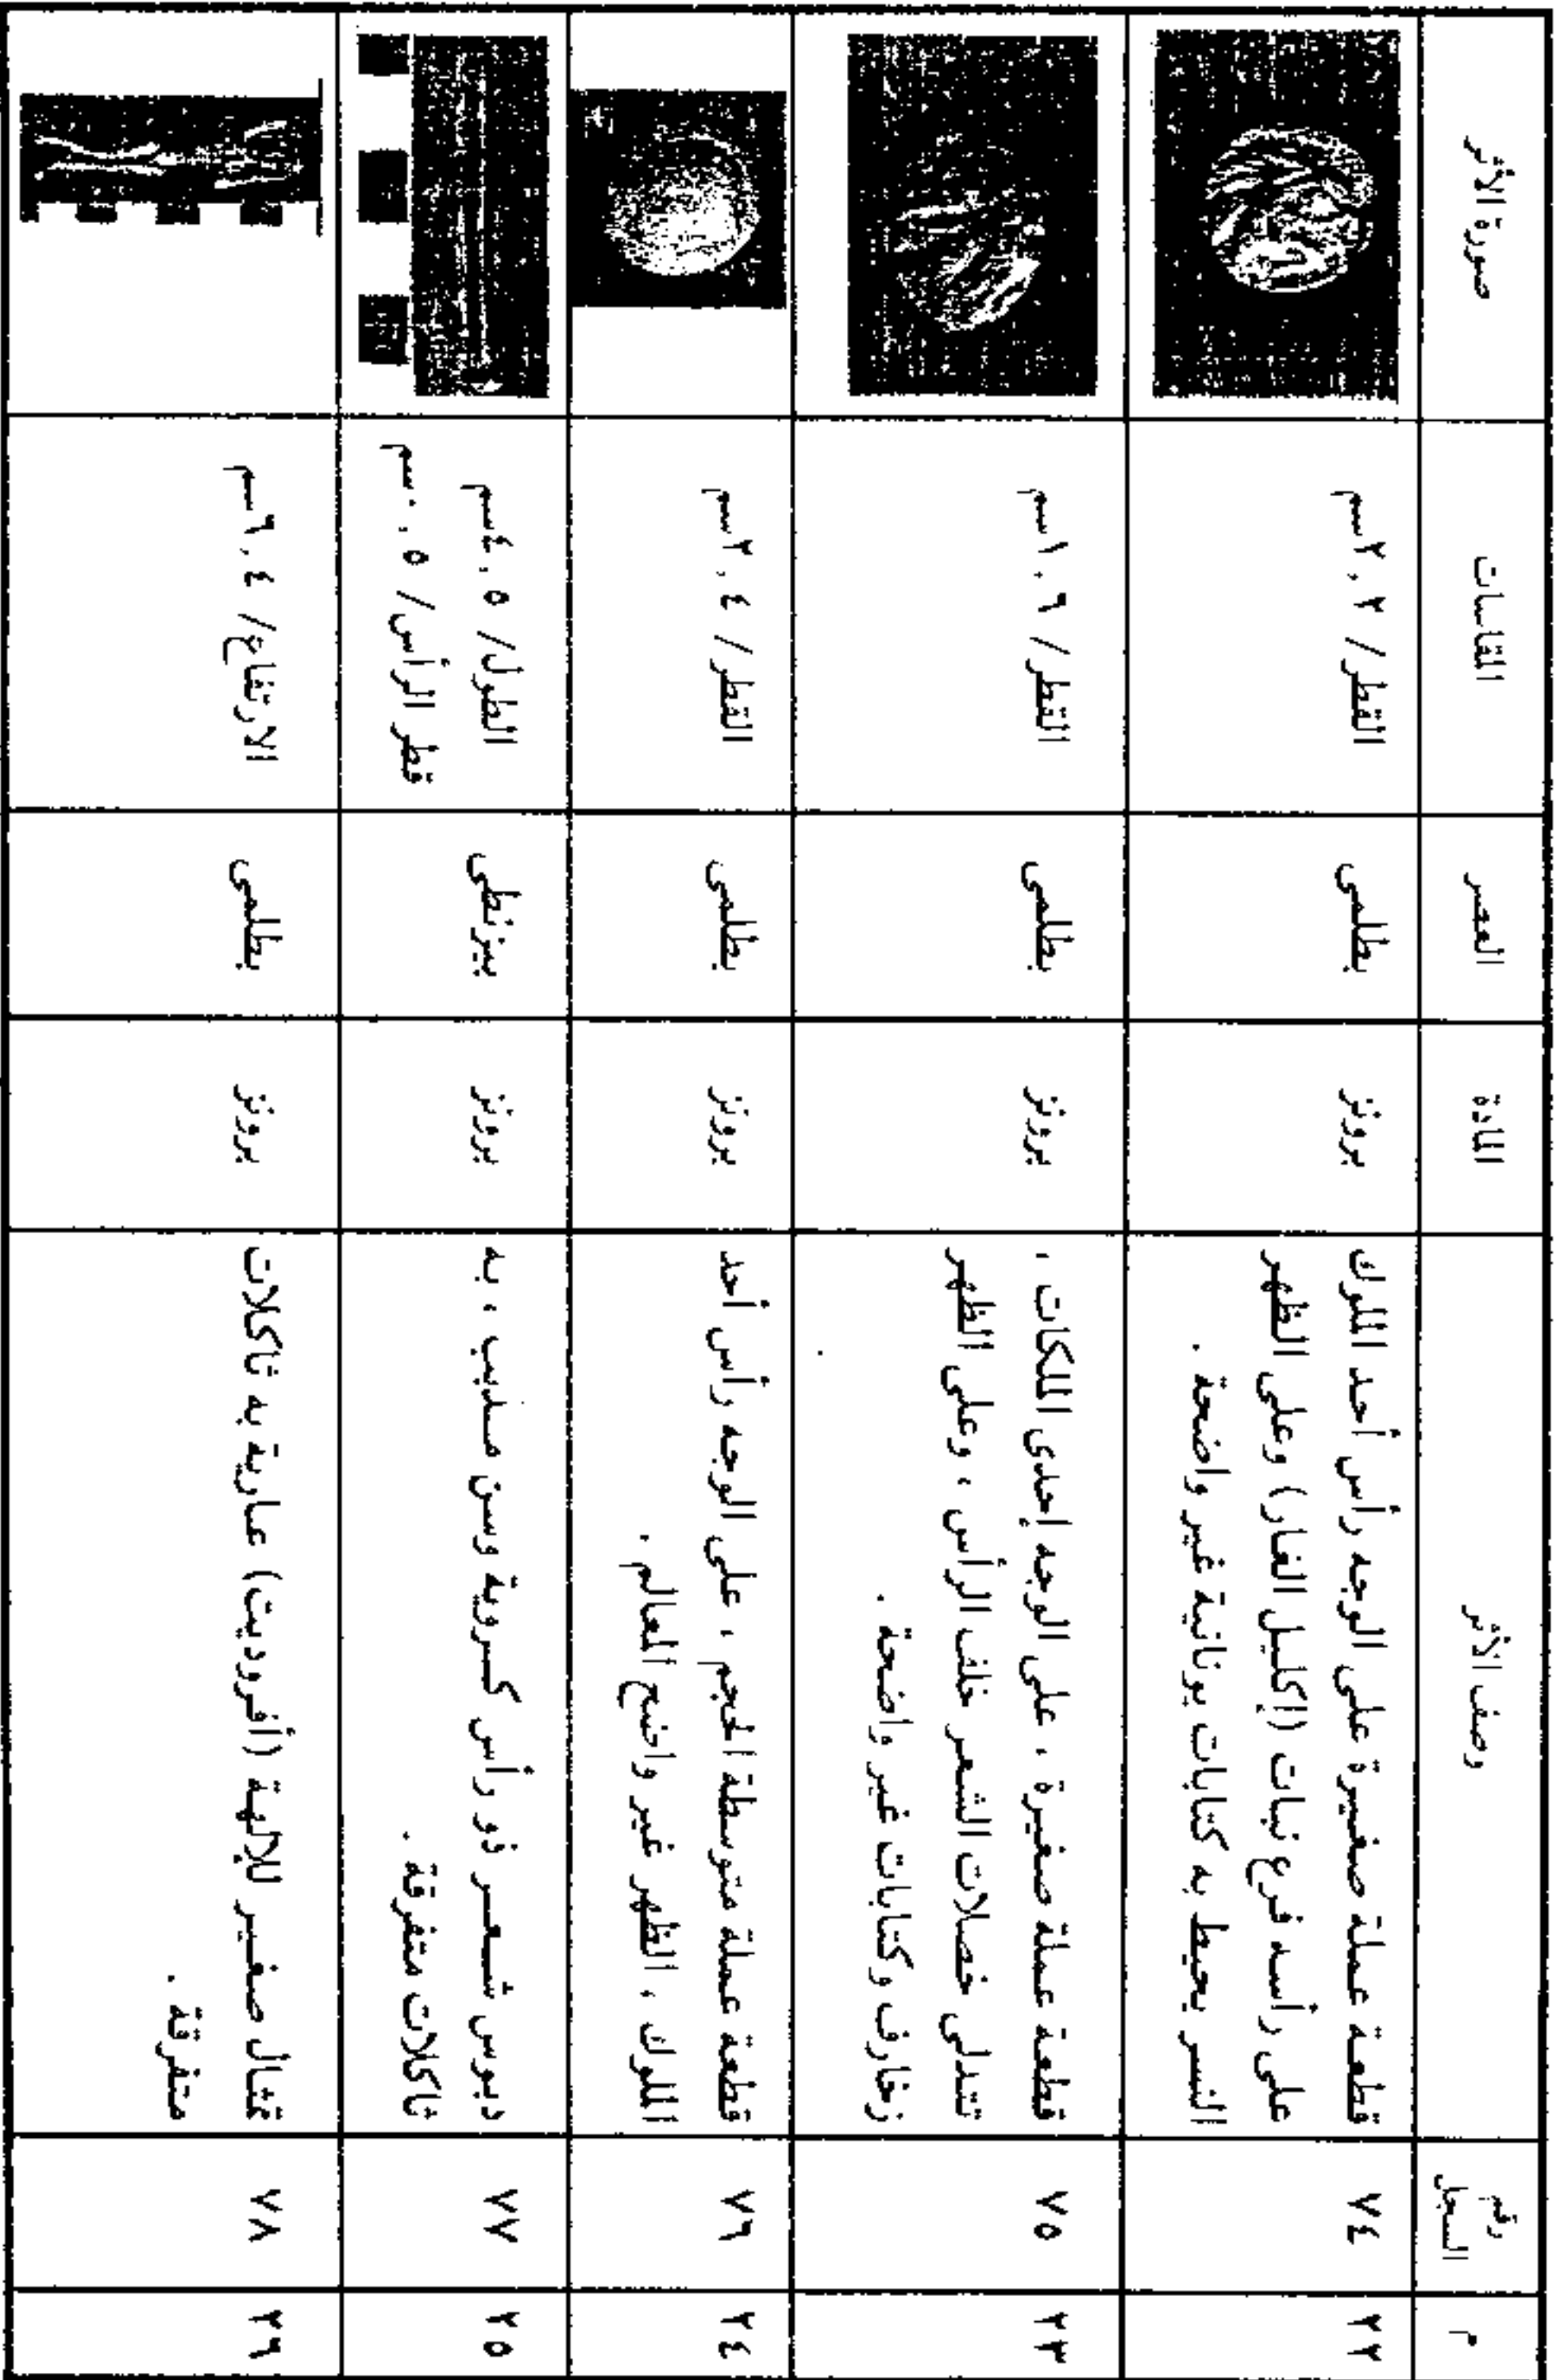 م
رقم
السجل
وصف الأثر
المادة
العصر
المقاسات
صورة الأثر
٢٢
٧٤
قطعة عملة صغيرة على الوجه رأس أحد الملوك
على رأسه فرع نبات (إكليل الغار) وعلى الظهر
النسر يحيط به كتابات يونانية غير واضحة .
برونز
بطلمى
القطر / ٢,٢سم
٢٣
٧٥
قطعة عملة صغيرة ، على الوجه إحدى الملكات ،
تتدلى خصلات الشعر خلف الرأس ، وعلى الظهر
زخارف وكتابات غير واضحة .
برونز
بطلمى
القطر / ١,٦سم
٢٤
٧٦
قطعة عملة متوسطة الحجم ، على الوجه رأس أحد
الملوك ، الظهر غير واضح المعالم .
برونز
بطلمى
القطر / ٢,٤سم
٢٥
٧٧
دبوس شعر ذو رأس كروية وسن مدبب ، به
تاكلات متفرقة .
برونز
بيزنطى
الطول / ٤,٥سم
قطر الرأس / ٠,٥سم
٢٦
٧٨
تمثال صغير للإلهة (أفروديت) عارية به تاكلات
متفرقة .
برونز
بطلمى
الارتفاع / ٦,٤سم